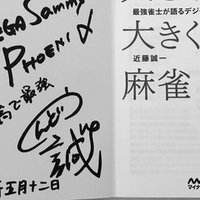 SEGA Sammy
PHOENIX
で最強
こんどう
誠一
五月十二日
最強雀士が語るデジ
大きく
近藤誠一
麻雀
マイナ